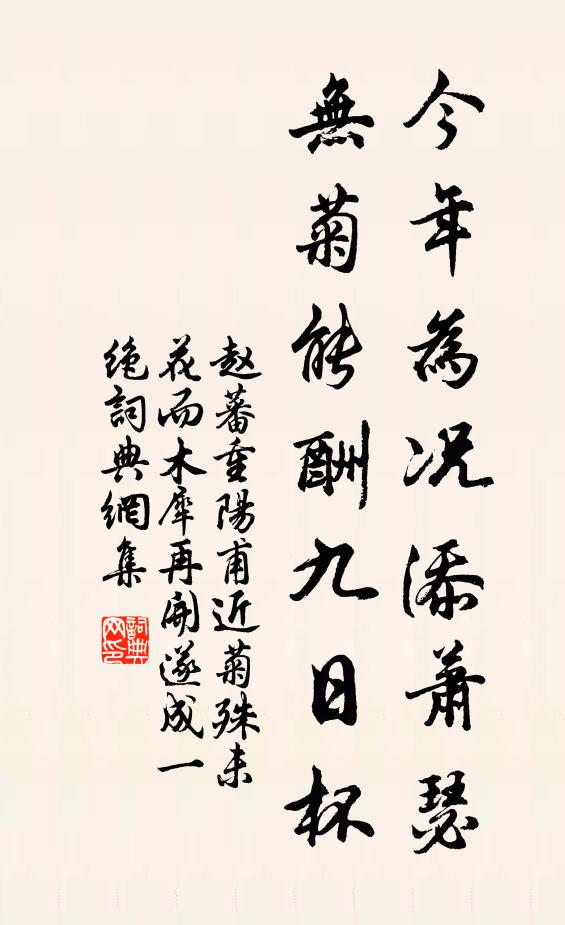 今年為況添蕭瑟
無菊能酬九日杯
赵蕃重陽甫近菊殊未
花而木犀再開遂成一
绝詞典網集
詞典
网印